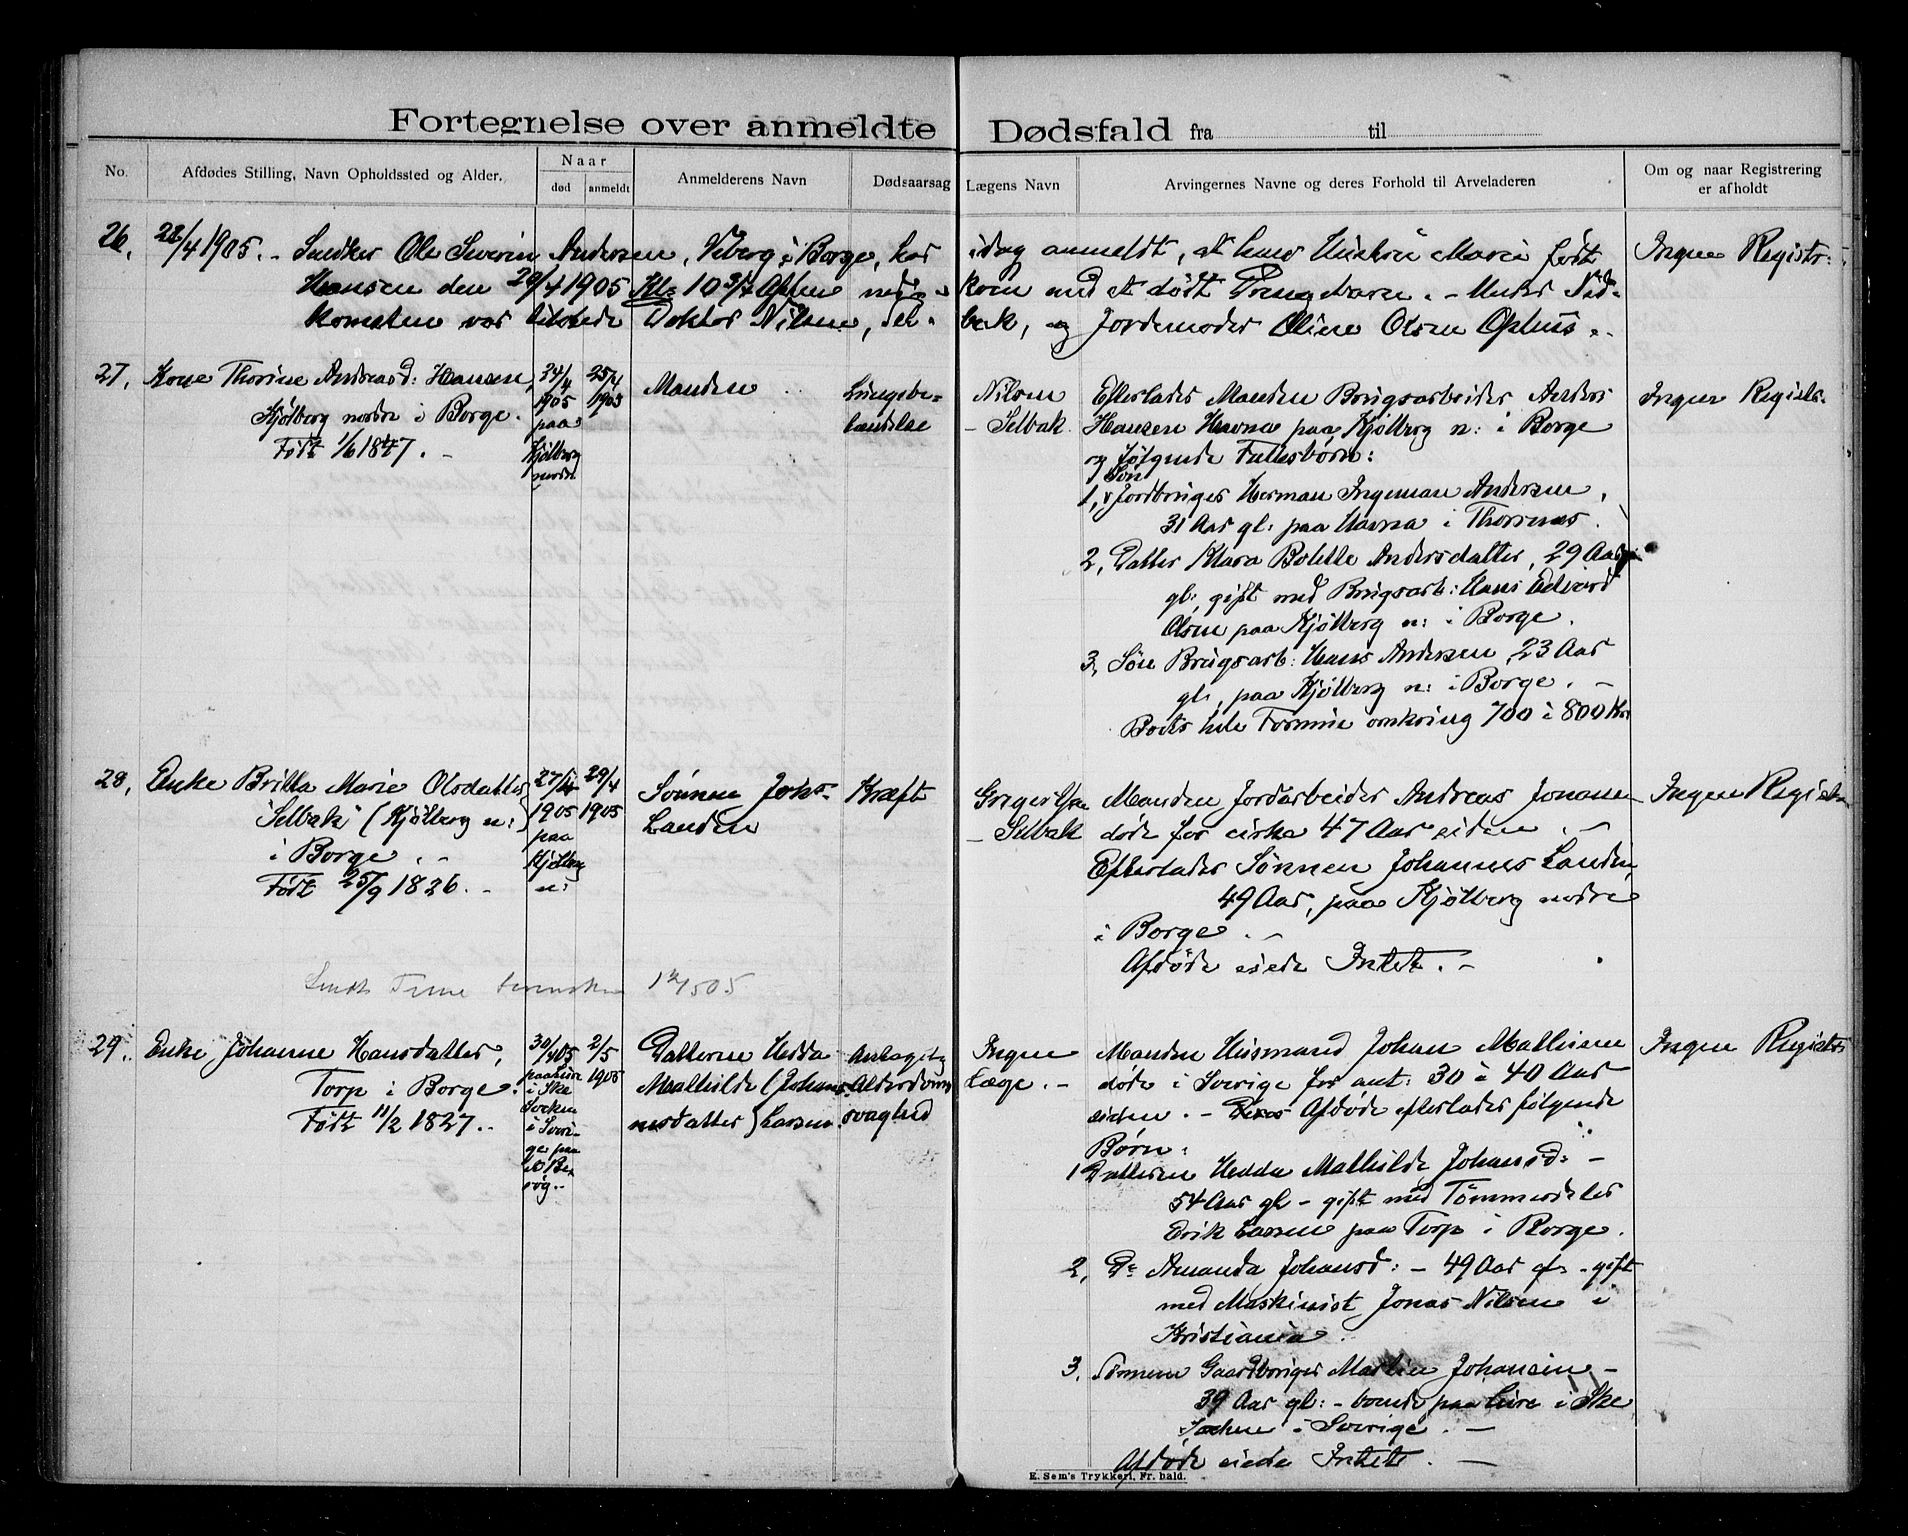 Fortegnelse over anmeldte Dødsfald fra til
No. Afdødes Stilling, Navn Opholdssted og Alder. Naar Anmelderens Navn Dødsaarsag Lægens Navn Arvingernes Navne og deres Forhold til Arveladeren Om og naar Registrering
død anmeldt er afholdt
26. 28/4 1905. - Snedker Ole Severin Andersen, Viberg i Borge, har idag anmeldt, at hans Hustru Marie født Ingen Registr:
Hansen den 28/4 1905 Kl: 10 3/4 Aften ned- kom med et dødt Drengebarn. -
komsten var tilstede Doktor Nilsen, Sel- bak, og Jordemoder Oline Olsen Ophus.
27. Kone Thorine Andreasd: Hansen,
Kjølberg nordre i Borge.
Født 1/6 1847. -
24/4
1905
paa
Kjølberg
nordre
25/4
1905
Manden
Lungebe-
tændelse
Nilsen
- Selbak.
Efterlader Manden Brugsarbeider Anders
Hansen Havna paa Kjølberg n: i Borge
og følgende Fællesbørn:
Søn
1, Jordbruger Herman Ingeman Andersen,
31 Aar gl: paa Havna i Thorsnes.
2, Datter Klara Bolette Andersdatter, 29 Aar
gl:, gift med Brugsarb: Hans Edvard
Olsen paa Kjølberg n: i Borge.
3, Søn Brugsarb: Hans Andersen, 23 Aar
gl:, paa Kjølberg n: i Borge. -
Boets hele Formue omkring 700 à 800 Kr
Ingen Registr.
28, Enke Britta Marie Olsdatter
"Selbak" (Kjølberg n:)
i Borge. -
Født 25/9 1826. -
27/4
1905
paa
Kjølberg
n:
29/4
1905
Sønnen Johs
Landin
Kræft
- Selbak
Manden Jordarbeider Andreas Jonassen
døde for cirka 47 Aar siden. -
Efterlader Sønnen Johannes Landin,
49 Aar, paa Kjølberg nordre
i Borge. -
Afdøde eiede Intet. -
Ingen Registr
Sendt
29. Enke Johanne Hansdatter,
Torp i Borge.
Født 11/2 1827. -
30/4 05
paa Lure
i Ske
Socken
i Sveri-
ge paa
et Be-
søg. -
2/5
1905
Datteren Hedda
Mathilde (Johan-
nesdatter) Larsen
Antagelig
Alderdoms
svaghed
Ingen
Læge. -
Manden Husmand Johan Mathisen
døde i Sverige for ant: 30 à 40 Aar
siden. - Afdøde efterlader følgende
Børn:
1 Datteren Hedda Mathilde Johansd: -
54 Aar gl - gift med Tømmerdeler
Erik Larsen paa Torp i Borge.
2, Do Amanda Johansd: - 49 Aar gl - gift
med Maskinist Jonas Nilsen i
Kristiania.
3. Sønnen Gaardbruger Martin Johansen -
39 Aar gl: - boende paa Lure i Ske
Socken i Sverige. -
Afdøde eiede Intet. -
Ingen Registr
E. Sem's Trykkeri, Fr.hald.